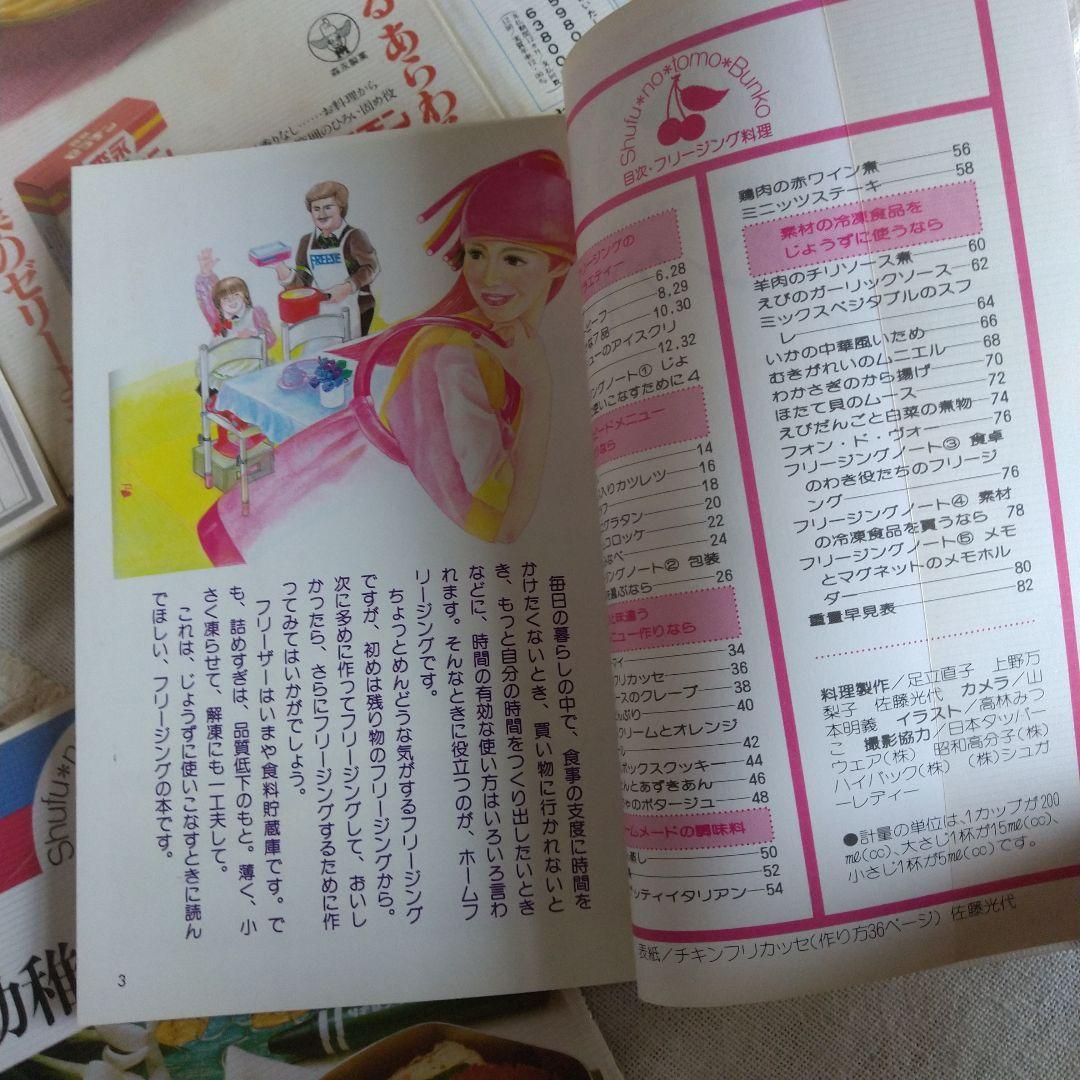 Shufu*no*tomo*Bunko
目次・フリージング料理
6.28
8.29
10.30
12.32
14
入りカツレツ 16
18
グラタン 20
コロッケ 22
なべ 24
ングノート② 包装
26
34
フリカッセ 36
ースのクレープ 38
んぶり 40
クリームとオレンジ
42
ボックスクッキー 44
んとあずきあん 46
ゃのポタージュ 48
ームメードの調味料
50
52
ッティイタリアン 54
鶏肉の赤ワイン煮 56
ミニッツステーキ 58
素材の冷凍食品を
じょうずに使うなら
羊肉のチリソース煮 60
えびのガーリックソース 62
ミックスベジタブルのスフ
レ 64
いかの中華風いため 66
むきがれいのムニエル 68
わかさぎのから揚げ 70
ほたて貝のムース 72
えびだんごと白菜の煮物 74
フォン・ド・ヴォー 76
フリージングノート③ 食卓
のわき役たちのフリージ
ング 76
フリージングノート④ 素材
の冷凍食品を買うなら 78
フリージングノート⑤ メモ
とマグネットのメモホル
ダー 80
重量早見表 82
料理製作/足立直子 上野万
梨子 佐藤光代 カメラ/山
本明義 イラスト/高林みつ
こ 撮影協力/日本タッパー
ウェア(株) 昭和高分子(株)
ハイパック(株) (株)シュガ
ーレディー
●計量の単位は、1カップが200
mℓ(cc)、大さじ1杯が15mℓ(cc)、
小さじ1杯が5mℓ(cc)です。
表紙/チキンフリカッセ(作り方36ページ) 佐藤光代
FREEZE
毎日の暮らしの中で、食事の支度に時間を
かけたくないとき、買い物に行かれないと
き、もっと自分の時間をつくり出したいとき
などに、時間の有効な使い方はいろいろ言わ
れます。そんなときに役立つのが、ホームフ
リージングです。
ちょっとめんどうな気がするフリージング
ですが、初めは残り物のフリージングから。
次に多めに作ってフリージングして、おいし
かったら、さらにフリージングするために作
ってみてはいかがでしょう。
フリーザーはいまや食料貯蔵庫です。で
も、詰めすぎは、品質低下のもと。薄く、小
さく凍らせて、解凍にも一工夫して。
これは、じょうずに使いこなすときに読ん
でほしい、フリージングの本です。
3
森永製菓
お料理から
範囲のひろい固め役
るあらわ
のゼリー
Shufu*n
幼稚